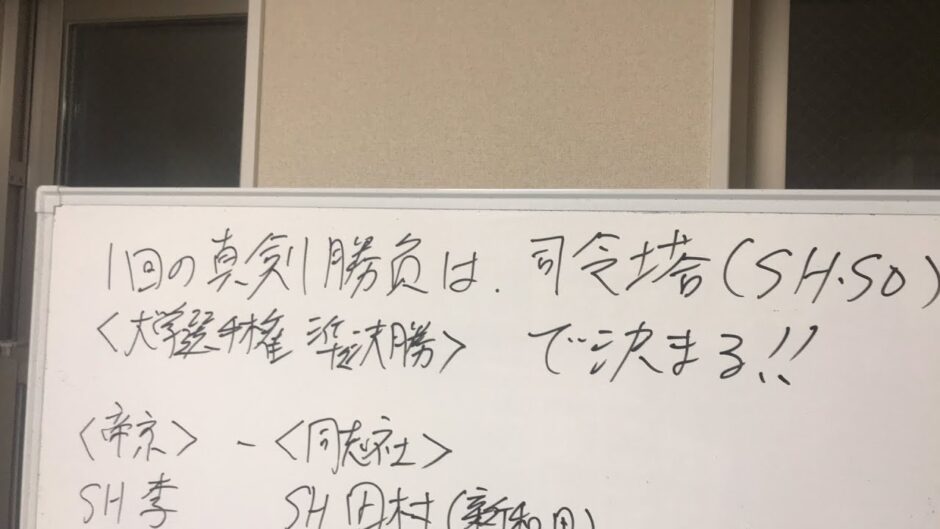 1回の真剣勝負は、司令塔(SH・SO)
<大学選手権 準決勝> で決まる!!
<帝京> - <同志社>
SH 李 SH 田村(新和田)